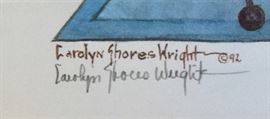 Carolyn Shores Wright ©92
Carolyn Shores Wright